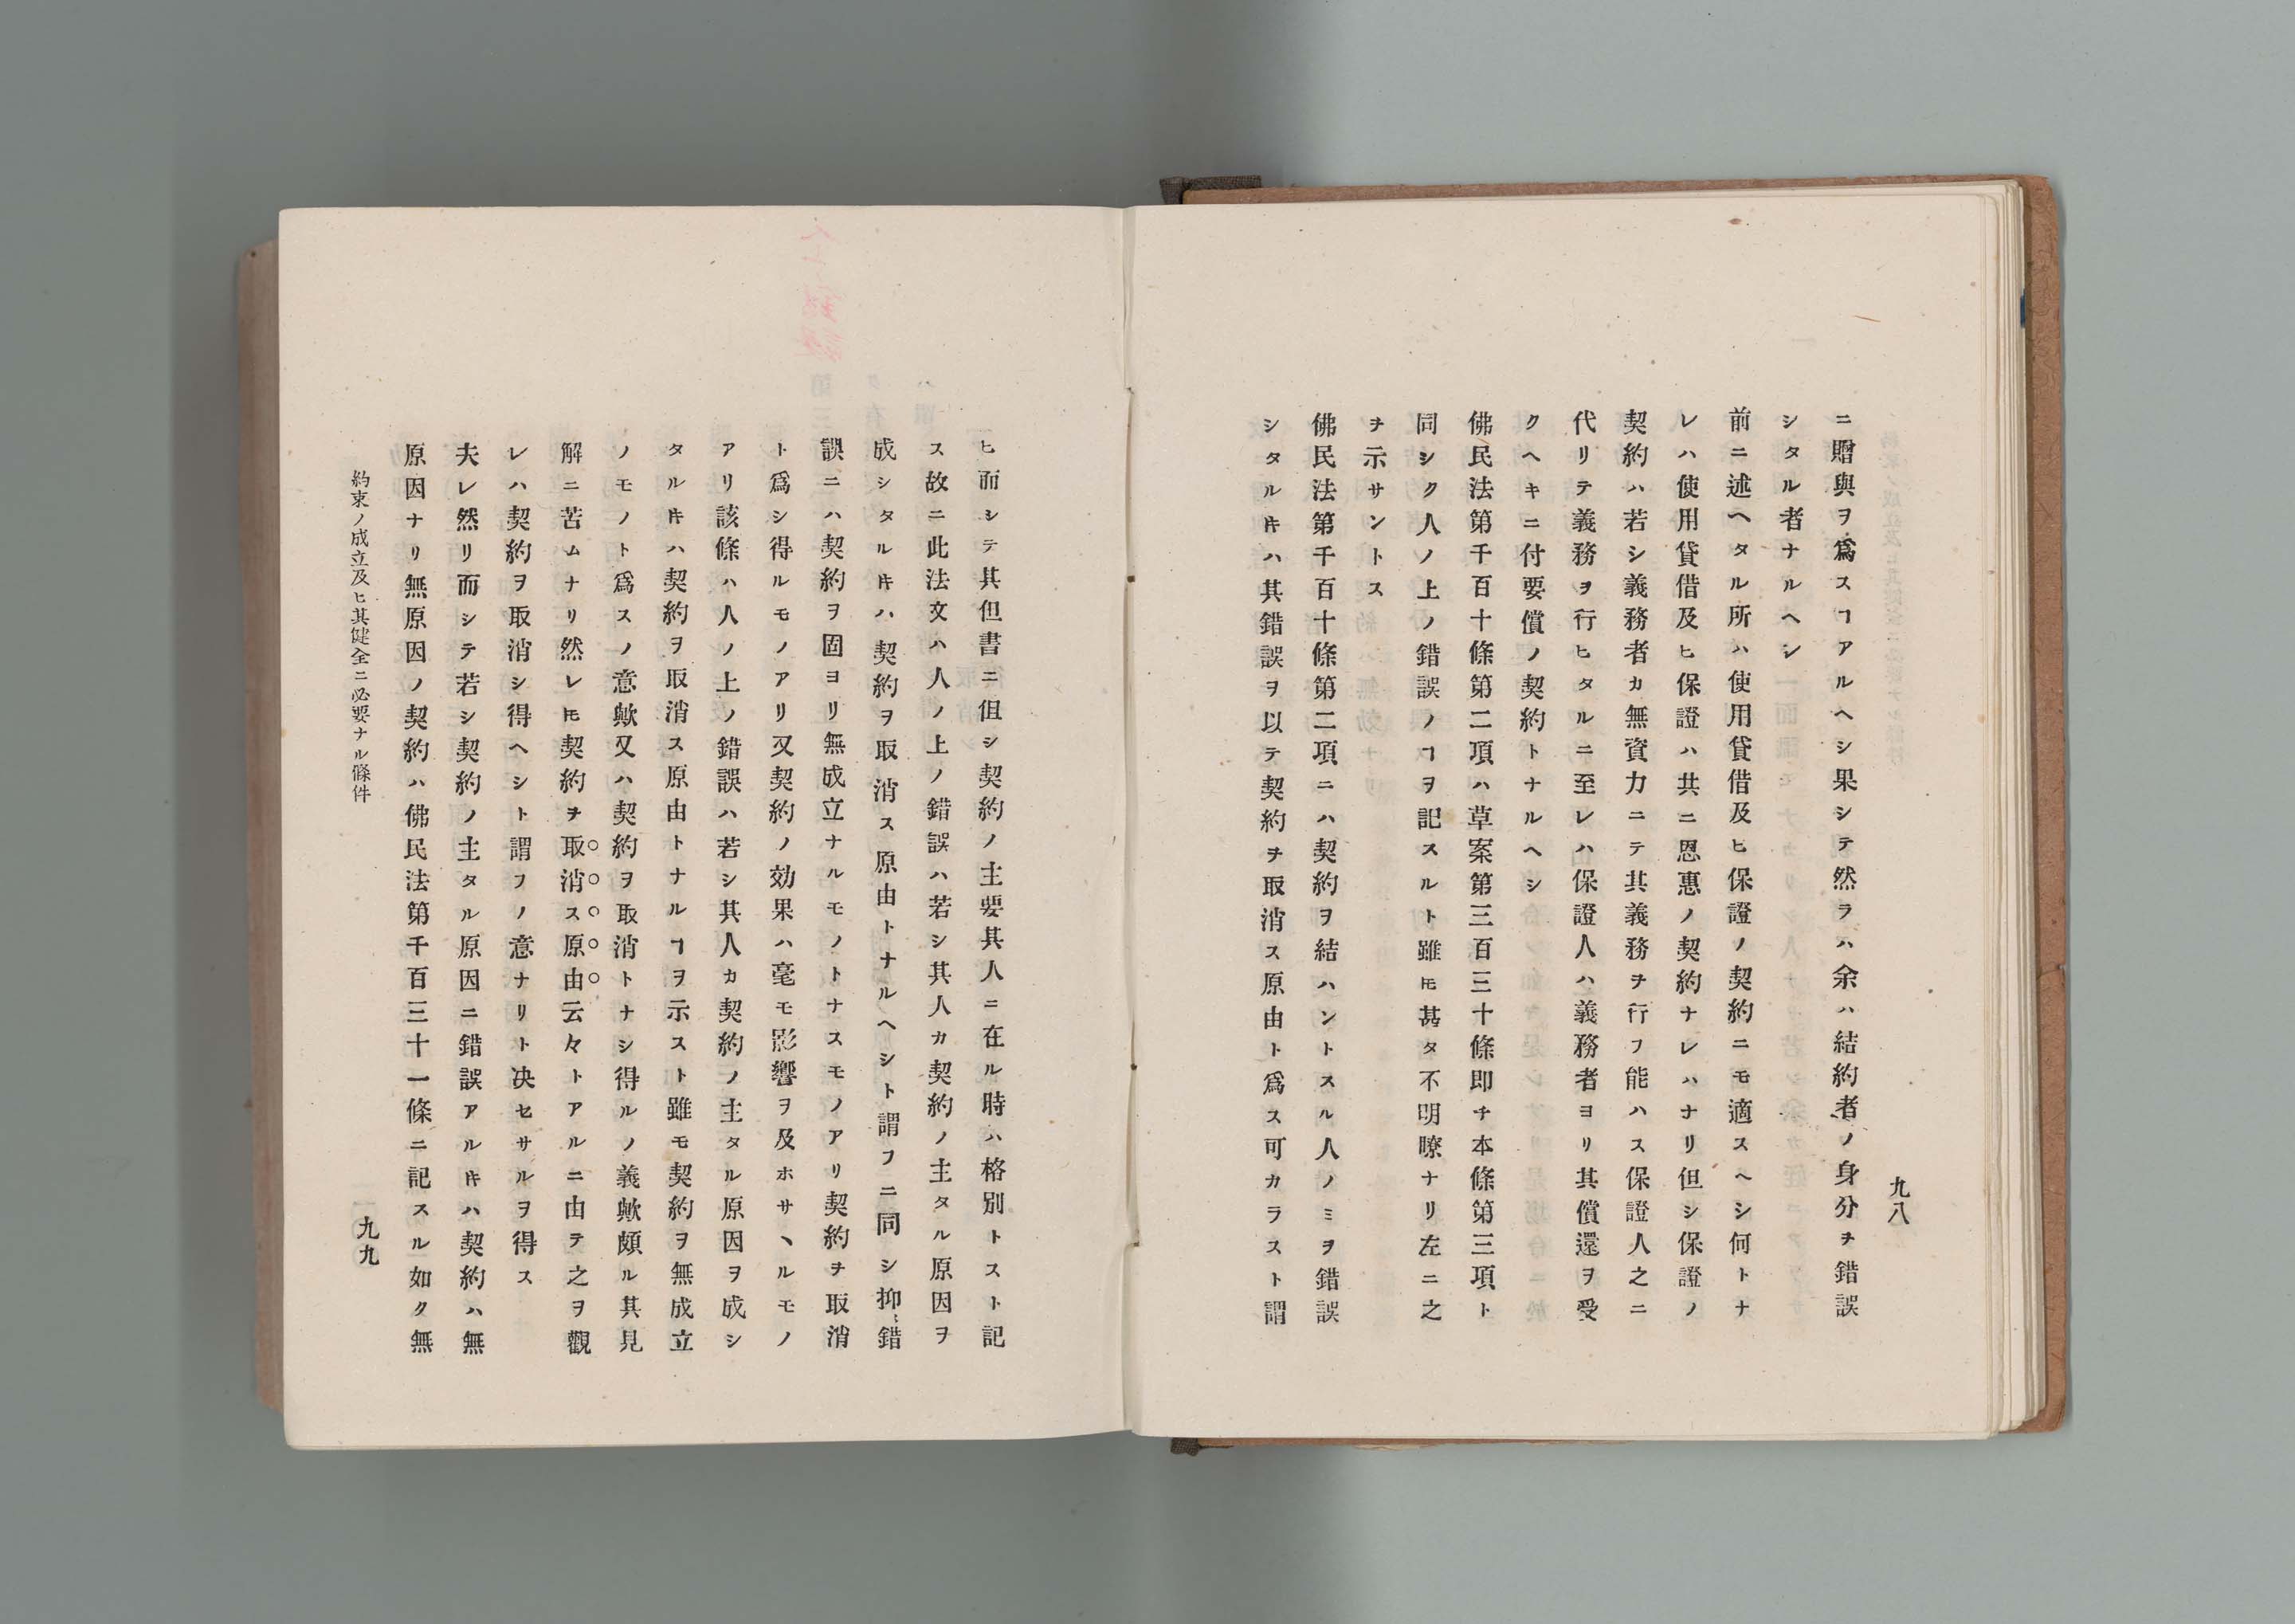 九八
ニ贈與ヲ爲スヿアルヘシ果シテ然ラハ余ハ結約者ノ身分ヲ錯誤
シタル者ナルヘシ
前ニ述ヘタル所ハ使用貸借及ヒ保證ノ契約ニモ適スヘシ何トナ
レハ使用貸借及ヒ保證ハ共ニ恩惠ノ契約ナレハナリ但シ保證ノ
契約ハ若シ義務者カ無資力ニテ其義務ヲ行フ能ハス保證人之ニ
代リテ義務ヲ行ヒタルニ至レハ保證人ハ義務者ヨリ其償還ヲ受
クヘキニ付要償ノ契約トナルヘシ
佛民法第千百十條第二項ハ草案第三百三十條即チ本條第三項ト
同シク人ノ上ノ錯誤ノヿヲ記スルト雖𪜈甚タ不明瞭ナリ左ニ之
ヲ示サントス
佛民法第千百十條第二項ニハ契約ヲ結ハントスル人ノミヲ錯誤
シタル𬼀ハ其錯誤ヲ以テ契約ヲ取消ス原由ト爲ス可カラスト謂
ヒ而シテ其但書ニ伹シ契約ノ主要其人ニ在ル時ハ格別トスト記
ス故ニ此法文ハ人ノ上ノ錯誤ハ若シ其人カ契約ノ主タル原因ヲ
成シタル𬼀ハ契約ヲ取消ス原由トナルヘシト謂フニ同シ抑錯
誤ニハ契約ヲ固ヨリ無成立ナルモノトナスモノアリ契約ヲ取消
ト爲シ得ルモノアリ又契約ノ効果ハ毫モ影響ヲ及ホサヽルモノ
アリ該條ハ人ノ上ノ錯誤ハ若シ其人カ契約ノ主タル原因ヲ成シ
タル𬼀ハ契約ヲ取消ス原由トナルヿヲ示スト雖モ契約ヲ無成立
ノモノト爲スノ意歟又ハ契約ヲ取消トナシ得ルノ義歟頗ル其見
解ニ苦ムナリ然レ𪜈契約ヲ取消ス原由云々トアルニ由テ之ヲ觀
レハ契約ヲ取消シ得ヘシト謂フノ意ナリト决セサルヲ得ス
夫レ然リ而シテ若シ契約ノ主タル原因ニ錯誤アル𬼀ハ契約ハ無
原因ナリ無原因ノ契約ハ佛民法第千百三十一條ニ記スル如ク無
約束ノ成立及ヒ其健全ニ必要ナル條件
九九